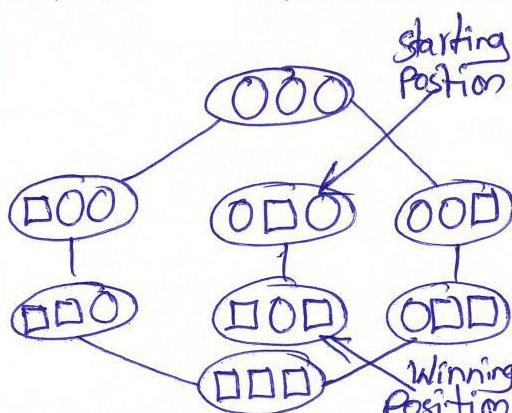 Starting
Postion
Winning
Position